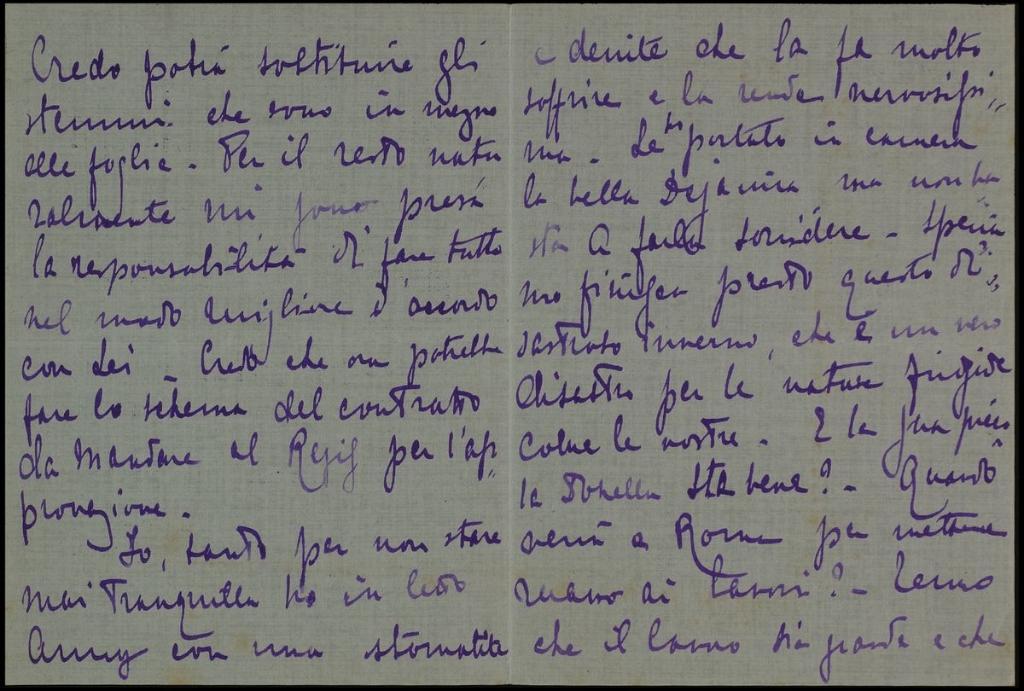 Credo potrà sostituire gli
stemmi che sono in mezzo
alle foglie. Per il resto natu
ralmente mi sono presa
la responsabilità di fare tutto
nel modo migliore d'accordo
con Lei _ Credo che ora potrebbe
fare lo schema del contratto
da mandare al per l'ap„
provazione.
Io, tanto per non stare
mai tranquilla ho in letto
Anny con una stomatite
e dentite che la fa molto
soffrire e la rende nervosissi„
ma. Le ho portato in camera
la bella Dejanira ma non ba
sta a farla sorridere _ Speria
mo finisca presto questo di„
sastroso inverno, che è un vero
disastro per le nature frigide
come le nostre. E la sua picco
la sta bene? _ Quando
verrà a Roma per mettere
mano ai lavori? _ Temo
che il lavoro sia grande e che